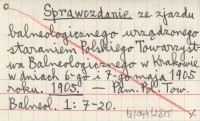 Sprawozdanie ze zjazdu
balneologicznego urządzonego
staraniem Polskiego Towarzyst-
wa Balneologicznego w Krakowie
w dniach 6-go i 7-go maja 1905
roku. 1905. — Pam. Pol. Tow.
Balneol. 1: 7-20.